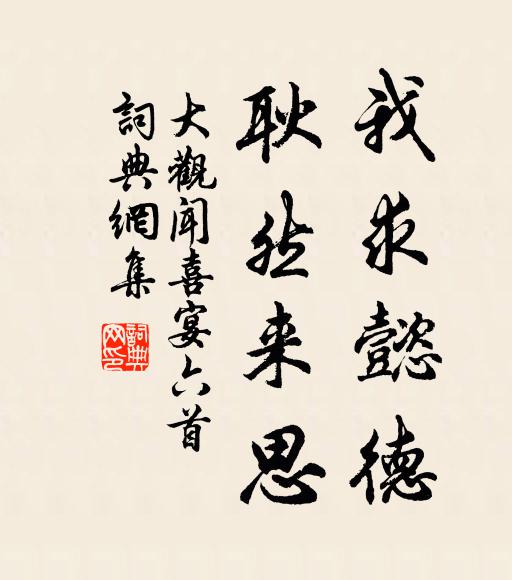 我求懿德
耿然来思
大觀闻喜宴六首
詞典網集
詞典網印